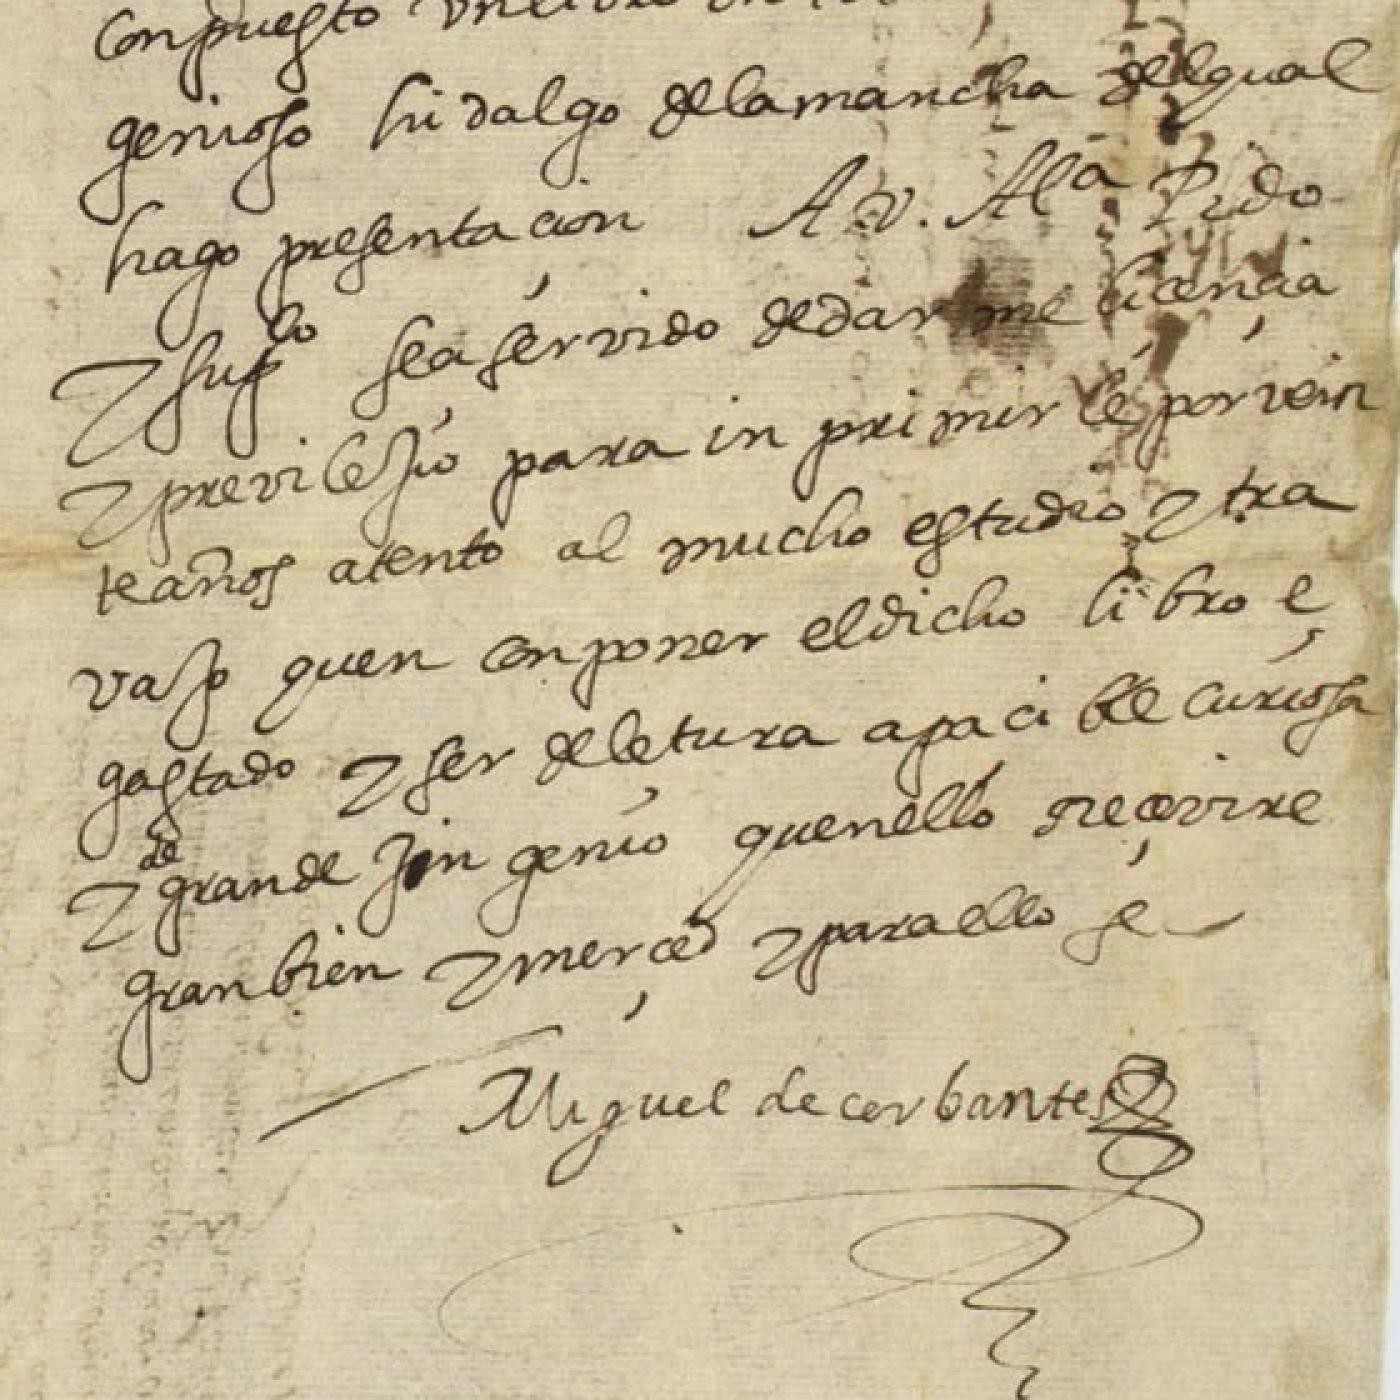 conpuesto un libro
genioso hidalgo dela mancha del qual
hago presentaçion A v. Al.ª Pido
y sup.co sea servido dedarme liçençia
y previlejio para inprimirle por vein
te años atento al mucho estudio y tra
vajo quen conponer el dicho libro e
gastado y ser de letura apacible curiosa
y de grande injenio quenello rreçevire
gran bien y merçed y para ello ec
Miguel de cerbantes